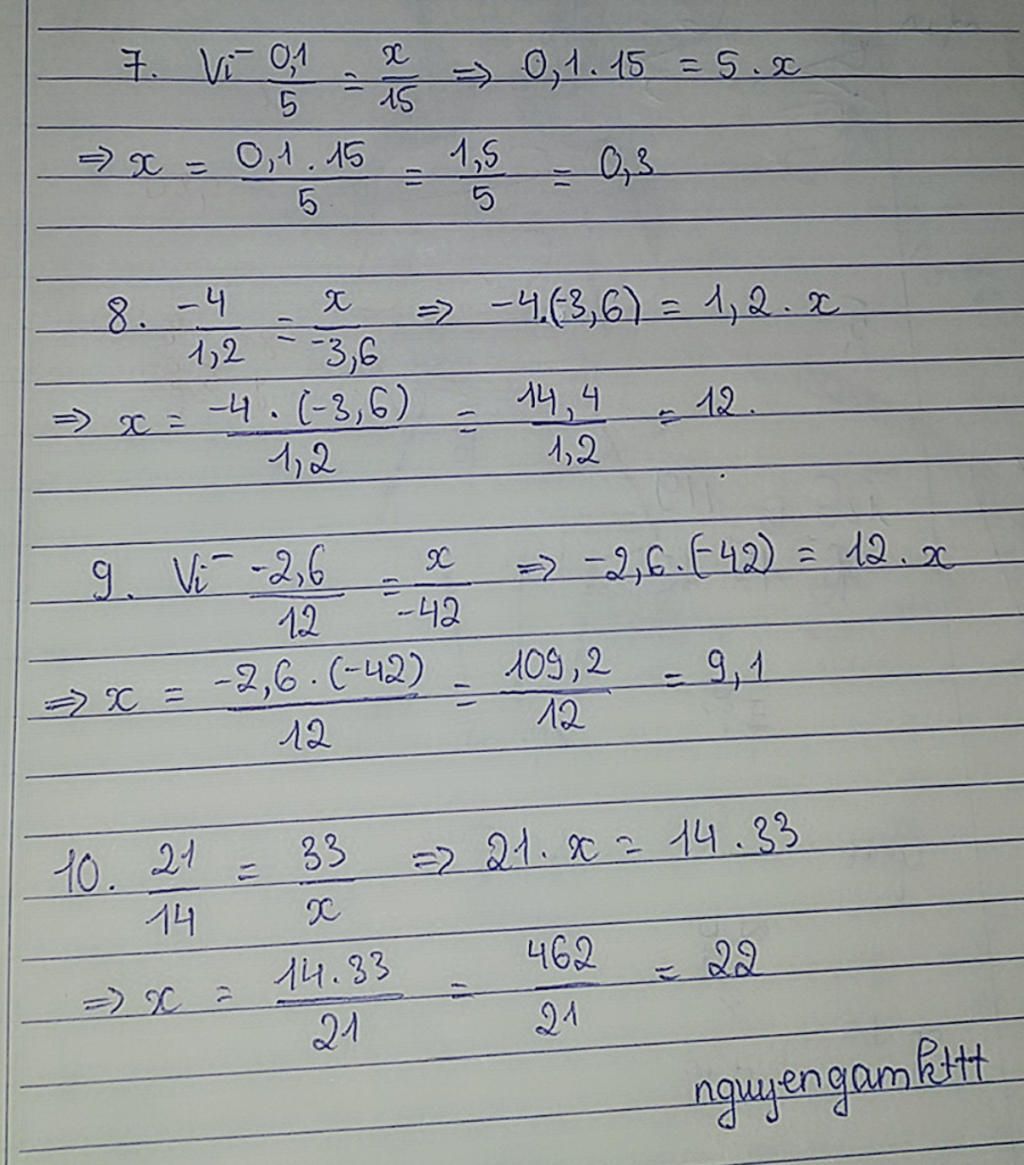 7. Vì 0,1/5 = x/15 ⇒ 0,1 . 15 = 5 . x
⇒ x = 0,1 . 15/5 = 1,5/5 = 0,3
8. -4/1,2 = x/-3,6 ⇒ -4.(-3,6) = 1,2 . x
⇒ x = -4 . (-3,6)/1,2 = 14,4/1,2 = 12.
9. Vì -2,6/12 = x/-42 ⇒ -2,6 . (-42) = 12 . x
⇒ x = -2,6 . (-42)/12 = 109,2/12 = 9,1
10. 21/14 = 33/x ⇒ 21 . x = 14 . 33
⇒ x = 14 . 33/21 = 462/21 = 22
nguyengamkttt